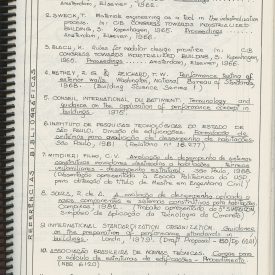 Amsterdam, Elsevier, 1966.
2. SWECK, T. Materials engineering as a tool in the industrialization
process. In: CIB CONGRESS TOWARDS INDUSTRIALIZED
BUILDING, 3. Kopenhagen, 1965. Proceedings
Amsterdam, Elsevier, 1966.
3. H. Rules for building design practice In: CIB
CONGRESS TOWARDS INDUSTRIALIZED BUILDING, 3. Kopenhagen,
1965. Proceedings... Amsterdam, Elsevier, 1966.
4. R.G. & T.W. Performance testing of
exterior walls. Washington, National Bureau of Standards,
1968. (Building Science Series 1)
5. CONSEIL INTERNATIONAL DU BATIMENT. Terminology and
guidance on the application of performance concept in
buildings. 1975.
6. INSTITUTO DE PESQUISAS TECNOLÓGICAS DO ESTADO DE
SÃO PAULO. Divisão de edificações. Formulação de
critérios para avaliação de desempenho de habitações.
São Paulo, 1981. (Relatório nº 16.277)
7. MITIDIERI FILHO, C.V. Avaliação de desempenho de sistemas
construtivos destinados a habitações térreas
unifamiliares - desempenho estrutural. São Paulo, 1988.
(Dissertação apresentada à Escola Politécnica da USP
para obtenção do Título de Mestre em Engenharia Civil)
8. SOUZA, R. de A avaliação de desempenho aplicada a
novos componentes e sistemas construtivos para habitação
1981. (Trabalho apresentado
Simpósio de Aplicação da Tecnologia do Concreto)
9. INTERNATIONAL STANDARDIZATION ORGANIZATION. Guidance
on the preparation of performance standards in
buildings. London, 1979. (Draft Proposal - ISO/DP 6241)
10. ASSOCIAÇÃO BRASILEIRA DE NORMAS TÉCNICAS. Cargas para
o cálculo de estruturas de edificações - Procedimento
(NBR 6120)
REFERÊNCIAS BIBLIOGRÁFICAS